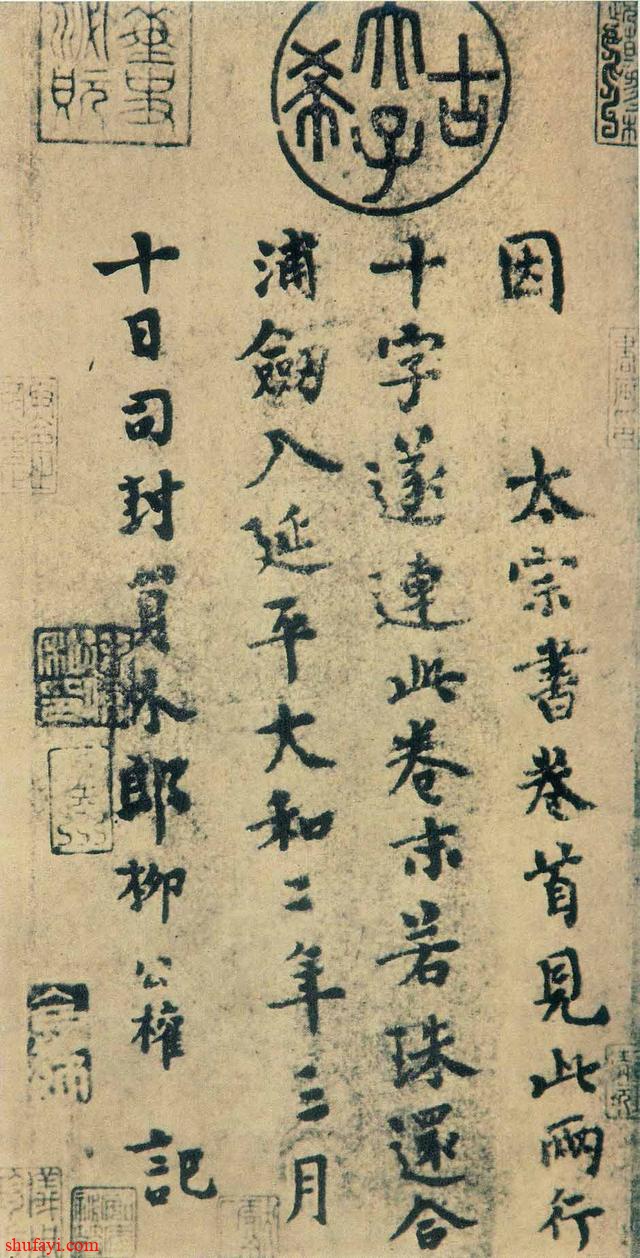 古希天子
因 太宗書卷首見此兩行
十字遂連此卷末若珠還合
浦劒入延平大和二年三月
十日司封員外郎柳公權 記
shufayi.com